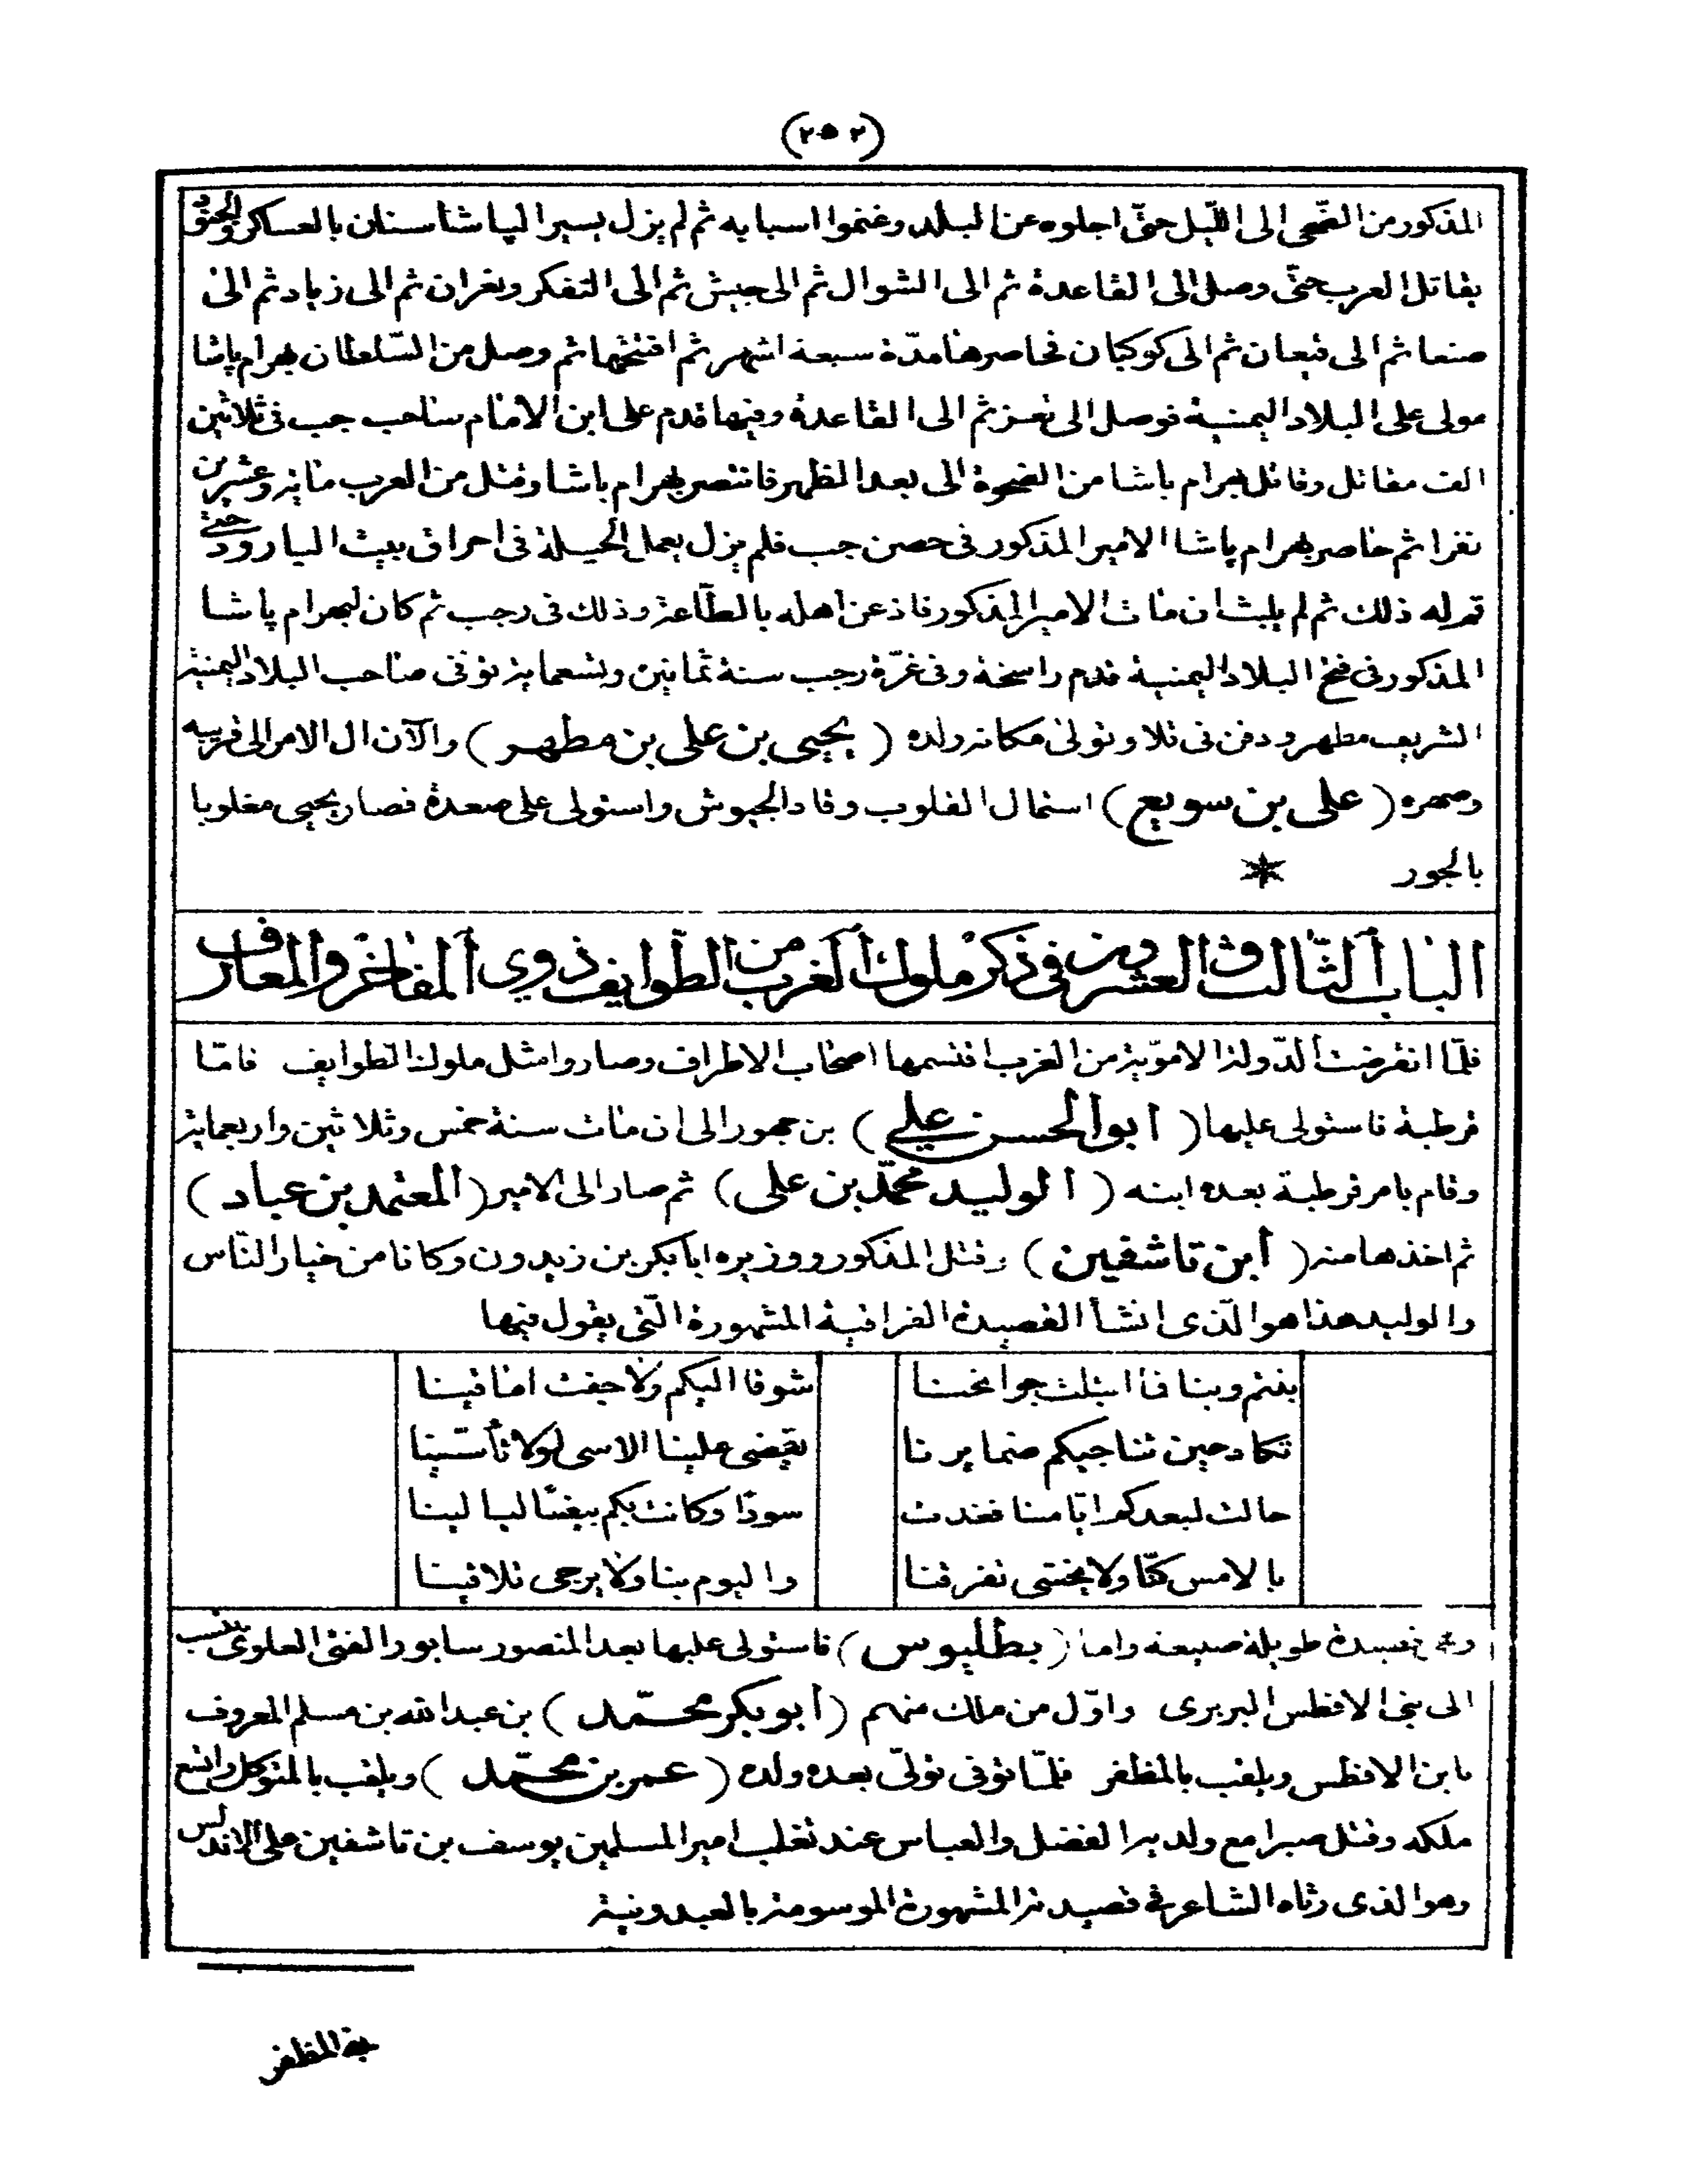 (٢٥٢)
المذكور من الضّحى الى اللّيل حتّى اجلوه عن البلاد وغنموا اسبابه ثم لم يزل يسير الپاشا سنان بالعساكر والجنود
يقاتل العرب حتّى وصل الى القاعدة ثم الى الشوال ثم الى جبش ثم الى التفكر ونغران ثم الى زباد ثم الى
صنعا ثم الى قبعان ثم الى كوكبان فحاصرها مدّة سبعة اشهر ثم افتتحها ثم وصل من السّلطان بهرام پاشا
مولى على البلاد اليمنية فوصل الى تعز ثم الى القاعدة وفيها قدم على ابن الامام صاحب حب فى ثلاثين
الف مقاتل وقاتل بهرام باشا من الضحوة الى بعد الظهر فانتصر بهرام باشا وقتل من العرب مائة وعشرين
نفرا ثم حاصر بهرام پاشا الامير المذكور فى حصن حب فلم يزل يعمل الحيلة فى احراق بيت البارود حتى
تم له ذلك ثم لم يلبث ان مات الامير المذكور فاذعن اهله بالطّاعة وذلك فى رجب ثم كان لبهرام پاشا
المذكور فى فتح البلاد اليمنية قدم راسخة وفى غرّة رجب سنة ثمانين وتسعماية توفى صاحب البلاد اليمنية
الشريف مطهر ودفن فى ثلا وتولى مكانه ولده ( يحيى بن على بن مطهر ) والآن ال الامر الى قريبه
وصهره ( على بن سويع ) استمال القلوب وقاد الجيوش واستولى على صعدة فصار يحيى مغلوبا
بالجور *
الباب الثّالث والعشرون فى ذكر ملوك الغرب من الطّوايف ذوي المفاخر والمعارف
فلمّا انقرضت الدّولة الامويّة من الغرب اقتسمها اصحاب الاطراف وصاروا مثل ملوك الطوايف فامّا
قرطبة فاستولى عليها ( ابو الحسن علي ) بن جهور الى ان مات سنة خمس وثلاثين واربعماية
وقام بامر قرطبة بعده ابنه ( الوليد محمّد بن على ) ثم صار الى الامير ( المعتمد بن عباد )
ثم اخذها منه ( ابن تاشفين ) وقتل المذكور ووزيره ابا بكر بن زيدون وكانا من خيار النّاس
والوليد هذا هو الّذى انشأ القصيدة الفراقية المشهورة الّتى يقول فيها
بنتم وبنا فما ابتلت جوانحنا شوقا اليكم ولا جفت اماقينا
تكاد حين تناجيكم ضمايرنا يقضى علينا الاسى لولا تأسّينا
حالت لبعدكم ايّامنا فغدت سودا وكانت بكم بيضا ليالينا
بالامس كنّا ولا يخشى تفرقنا واليوم بنا ولا يرجى تلاقينا
وهى قصيدة طويلة صيعة واما ( بطليوس ) فاستولى عليها بعد المنصور سابور الفتى العلوى ينتسب
الى بنى الافطس البربرى واوّل من ملك منهم ( ابو بكر محمّد ) بن عبد الله بن مسلم المعروف
بابن الافطس ويلقب بالمظفر فلمّا توفى تولّى بعده ولده ( عمر بن محمّد ) ويلقب بالمتوكل واتسع
ملكه وقتل صبرا مع ولديه الفضل والعباس عند تغلب امير المسلمين يوسف بن تاشفين على الاندلس
وهو الذى رثاه الشاعر فى قصيدته المشهورة الموسومة بالعبدونية
بنو المظفر